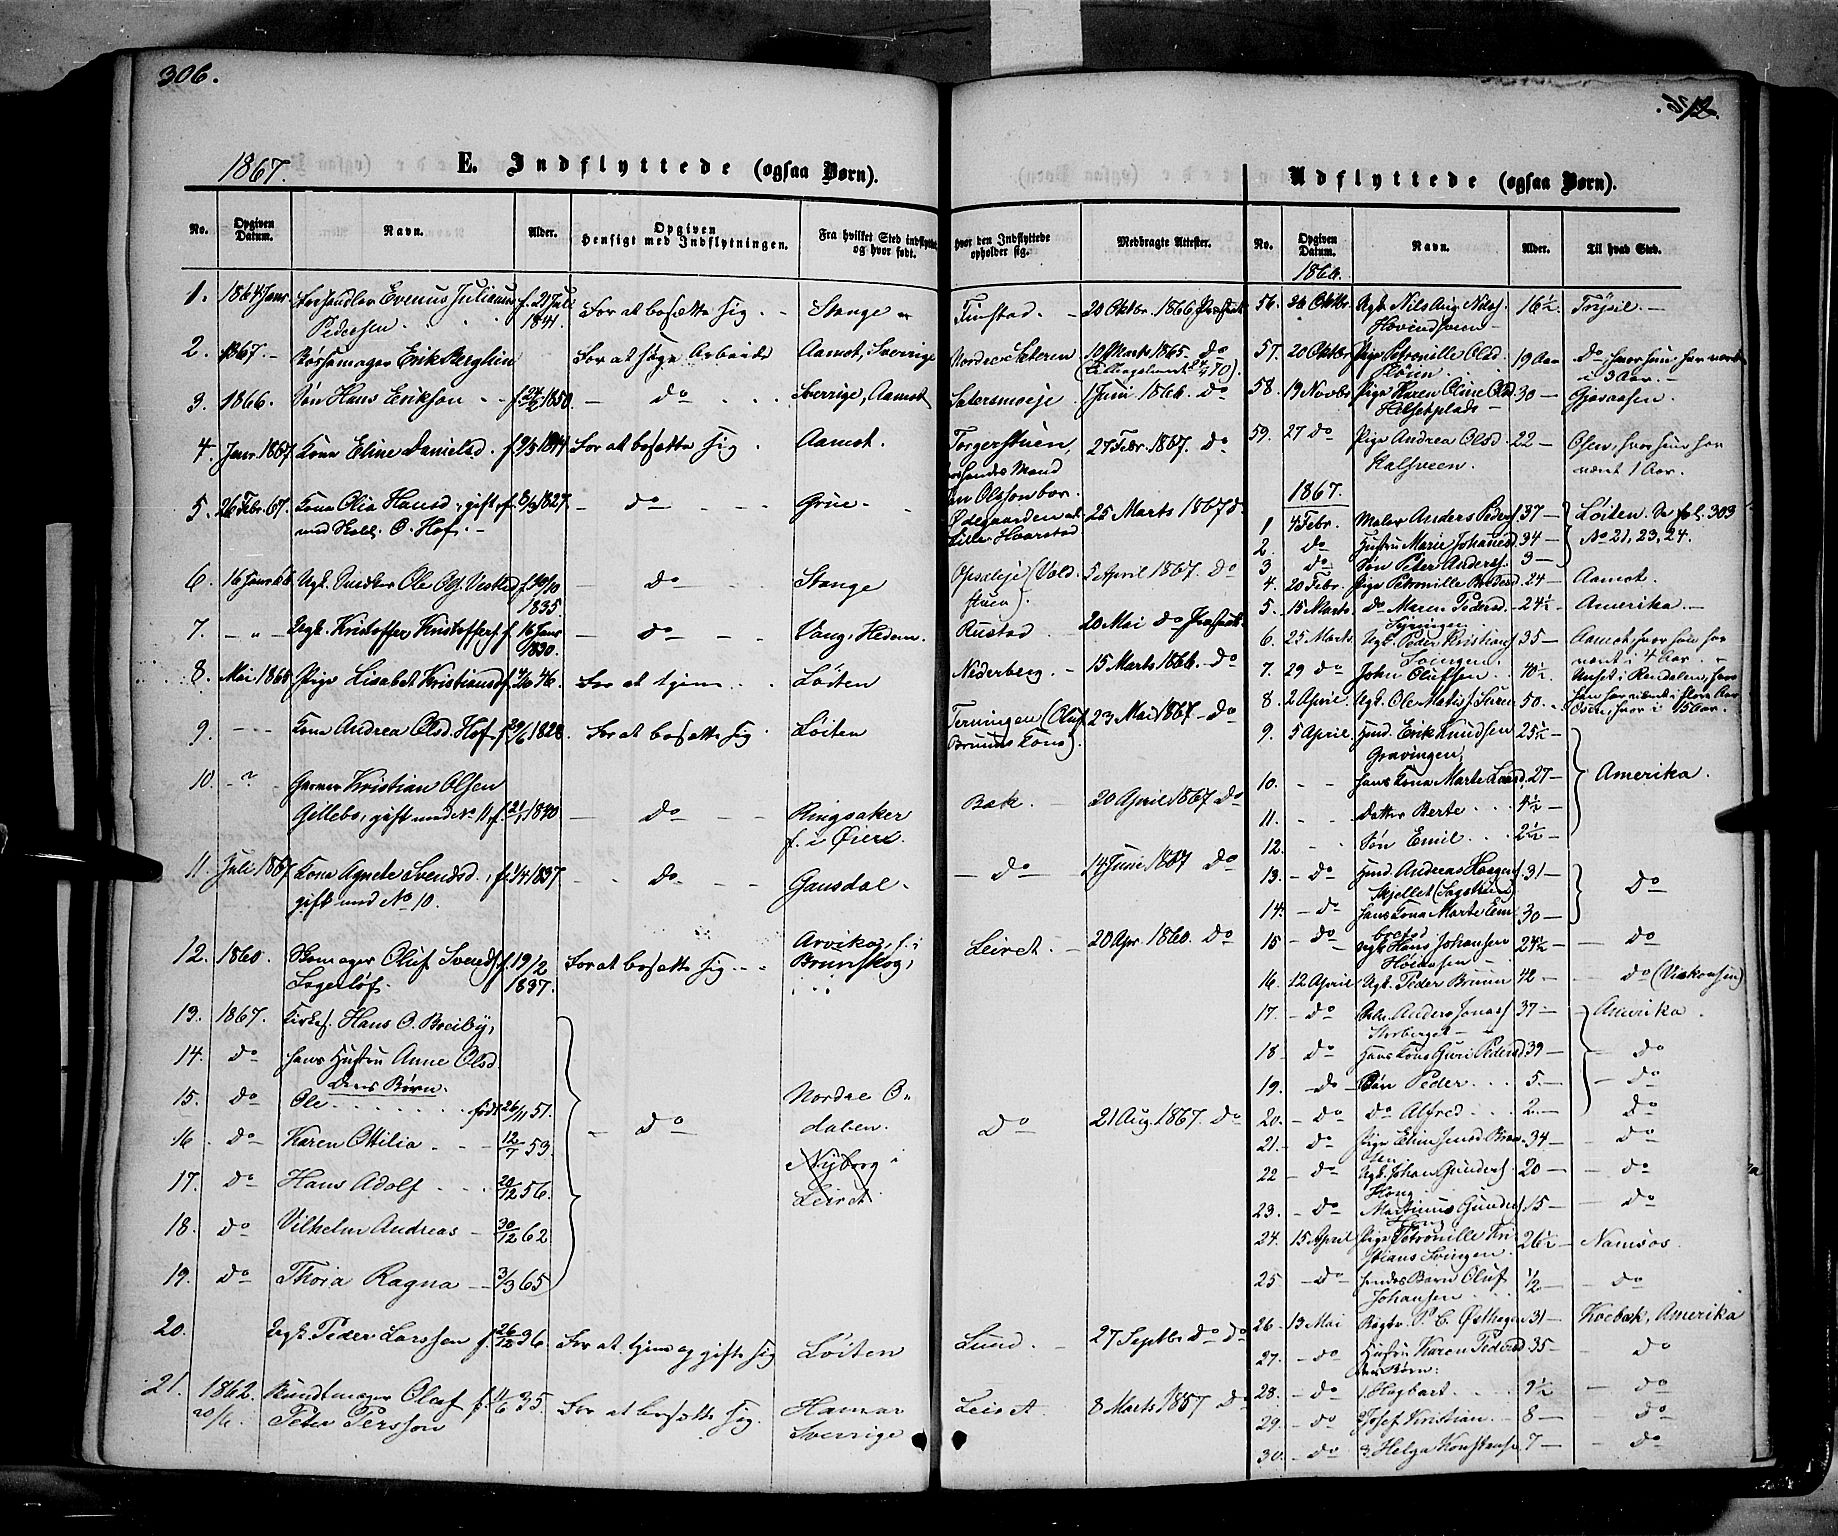 306.
12.
1867.
E. Indflyttede (ogsaa Børn).
No.
Opgiven Datum.
Navn.
Alder.
Opgiven Hensigt med Indflytningen.
Fra hvilket Sted indflyttet og hvor født.
hvor den Indflyttede opholder sig.
Medbragte Attester.
1. 1864 Janr Evenus Julianus f. 21 Juli For at bosætte sig Stange Finstad. 20 Oktbr. 1866
Pedersen. 1841.
2. 1867. Erik Berglin For at søge Arbeide Aamot, Sverrige Nordre Sæteren 10 Marts 1865. do
3. 1866. Søn Hans Erikson f. 1850. do Sverrige, Aamot Sætersmoeje 1 Juni 1866. do
4. Janr. 1867 Kona Eline Danielsd. f. 9/3 1844 For at bosætte sig Aamot. Torgerstuen, 27 Febr. 1867. do
hendes Mand
5. 26 Febr. 67. Kona Olia Hansd. gift f. 8/9 1827. do Grue Olsson bor.
med O. Hof. Ødegaarden 25 Marts 1867 do
Lille Haarstad
6. 16 Janr 66 Ugk. Snedker Ole f. 10/10 do Stange 5 April 1867. do
1835 stuen).
7. " Ugk. Kristoffer Kristoffers. f. 16 Janr do Vang, Hedem. Rustad 20 Mai do
1830.
8. Mai 1865 Pige Lisabet Kristiansd. 46. For at tjene Løiten Nederberg 15 Marts 1866. do
9. Kona Andrea Olsd. Hof f. 29/6 1828 For at bosætte sig. Løiten Terningen (Oluf 23 Mai 1867 do
Bruuns Kone).
10. ? Garver Kristian Olsen
Gillebo, gift med No 11, f. 21/1 1840 do Ringsaker Bæk. 20 April 1867 do
f. i Øier.
11. Juli 1867 Kona Agnete Svendsd. f. 1837 do Gausdal. do 14 Juni 1867 do
gift med No 10.
12. 1860. Skomager Oluf Svends. f. 19/2 For at bosætte sig Arvika, f. i Leiret 20 Apr. 1860. do
Lagerløf. 1837. Brunskog.
13. 1867. Kirkes. Hans O. Breiby,
14. do hans Hustru Anne Olsd
deres Børn.
15. do Ole født 26/11 51. Nordre O-
16. do Karen Otilia 12/7 53. do dalen. do 21 Aug. 1867. do
Nyborg i
17. do Hans Adolf 20/12 56. Leiret
18. do Vilhelm Andreas 30/12 62
19. do Thora Ragna 3/3 65
20. Ugk. Peder Larssen f. 26/12 36. For at tjene og gifte sig Løiten Lund 27 Septbr. do do
21. 1862 Bundtmager Olaf f. 11/6 35. For at bosætte sig. Hamar Leiret 8 Marts 1857 do
20/6. Peter Persson Sverrige
Udflyttede (ogsaa Børn).
No.
Opgiven Datum.
Navn.
Alder.
Til hvad Sted.
1866.
56. 26 Oktbr. Ugk. Nils Aug. Nils. 16½ Trysil
Hovindsveen
57. 20 Oktbr Pige Petronille Olsd. 19 Aar do, hvor hun har været
i 3 Aar.
58. 19 Novbr Pige Karen Oline Olsd 30 Gjeraasen.
Helsetplads
59. 27 do Pige Andrea Olsd. 22 Osen, hvor hun har
Kalsveen. været 1 Aar.
1867.
1 4 Febr. Maler Anders Peders. 37 Løiten. Se fol. 303
2. do Hustru Marie Johannesd. 34 No 21, 23, 24.
3 do Søn Peter Anders. 3
4. 20 Febr. Pige Petronille Pedersd 24 Aamot.
5. 15 Marts do Maren Pedersd. 24½ Amerika.
6. 25 Marts Ugk. Peder Kristians. 35 Aamot, hvor han har
Svingen. været i 4 Aar.
7. 29 do John Olufsen 40½ Unset i Rendalen, hvor
han har været i flere Aar
8 2 April Ugk. Ole Matis. 50. Osen, hvor i 15 Aar.
9. 5 April Husd. Erik Knudsen 25½
Gravingen
10. hans Kona Marte Larsd. 27 Amerika.
11. Datter Berte 4½
12. Søn Emil 2½
13. do Husd. Andreas Haagens. 31
Skjellet do
14. do hans Kona Marte Em- 30
bretsd
15 do Ugk. Hans Johansen 24½ do
16. 12 April Ugk. Peder Bruun 42 do (Viskonsin)
17. do Anders Jonas. 37 Amerika.
Storberget
18 do Hans Kone Guri Pedersd 39 do
19. do Søn Peder 5. do
20. do do Alfred 2. do
21. do Pige Elin Jensd 34 do
22 do Ugk. Johan Gunders. 20 do
Haug
23. do Martinus Gunders. 15 do
Haug
24. 15 April Pige Petronille Kri- 26½ Namsos.
stians. Svingen.
25 do hendes Barn Oluf ½ do
Johansen
26. 13 Mai P. C. Østhagen 31 Koebæk, Amerika
27. do Hustru Karen Pedersd 35 do
deres Børn:
28. do 1. Hagbart 9½ do
29. do 2. Josef Kristian. 8 do
30. do 3. Helga Konstanse 7 do